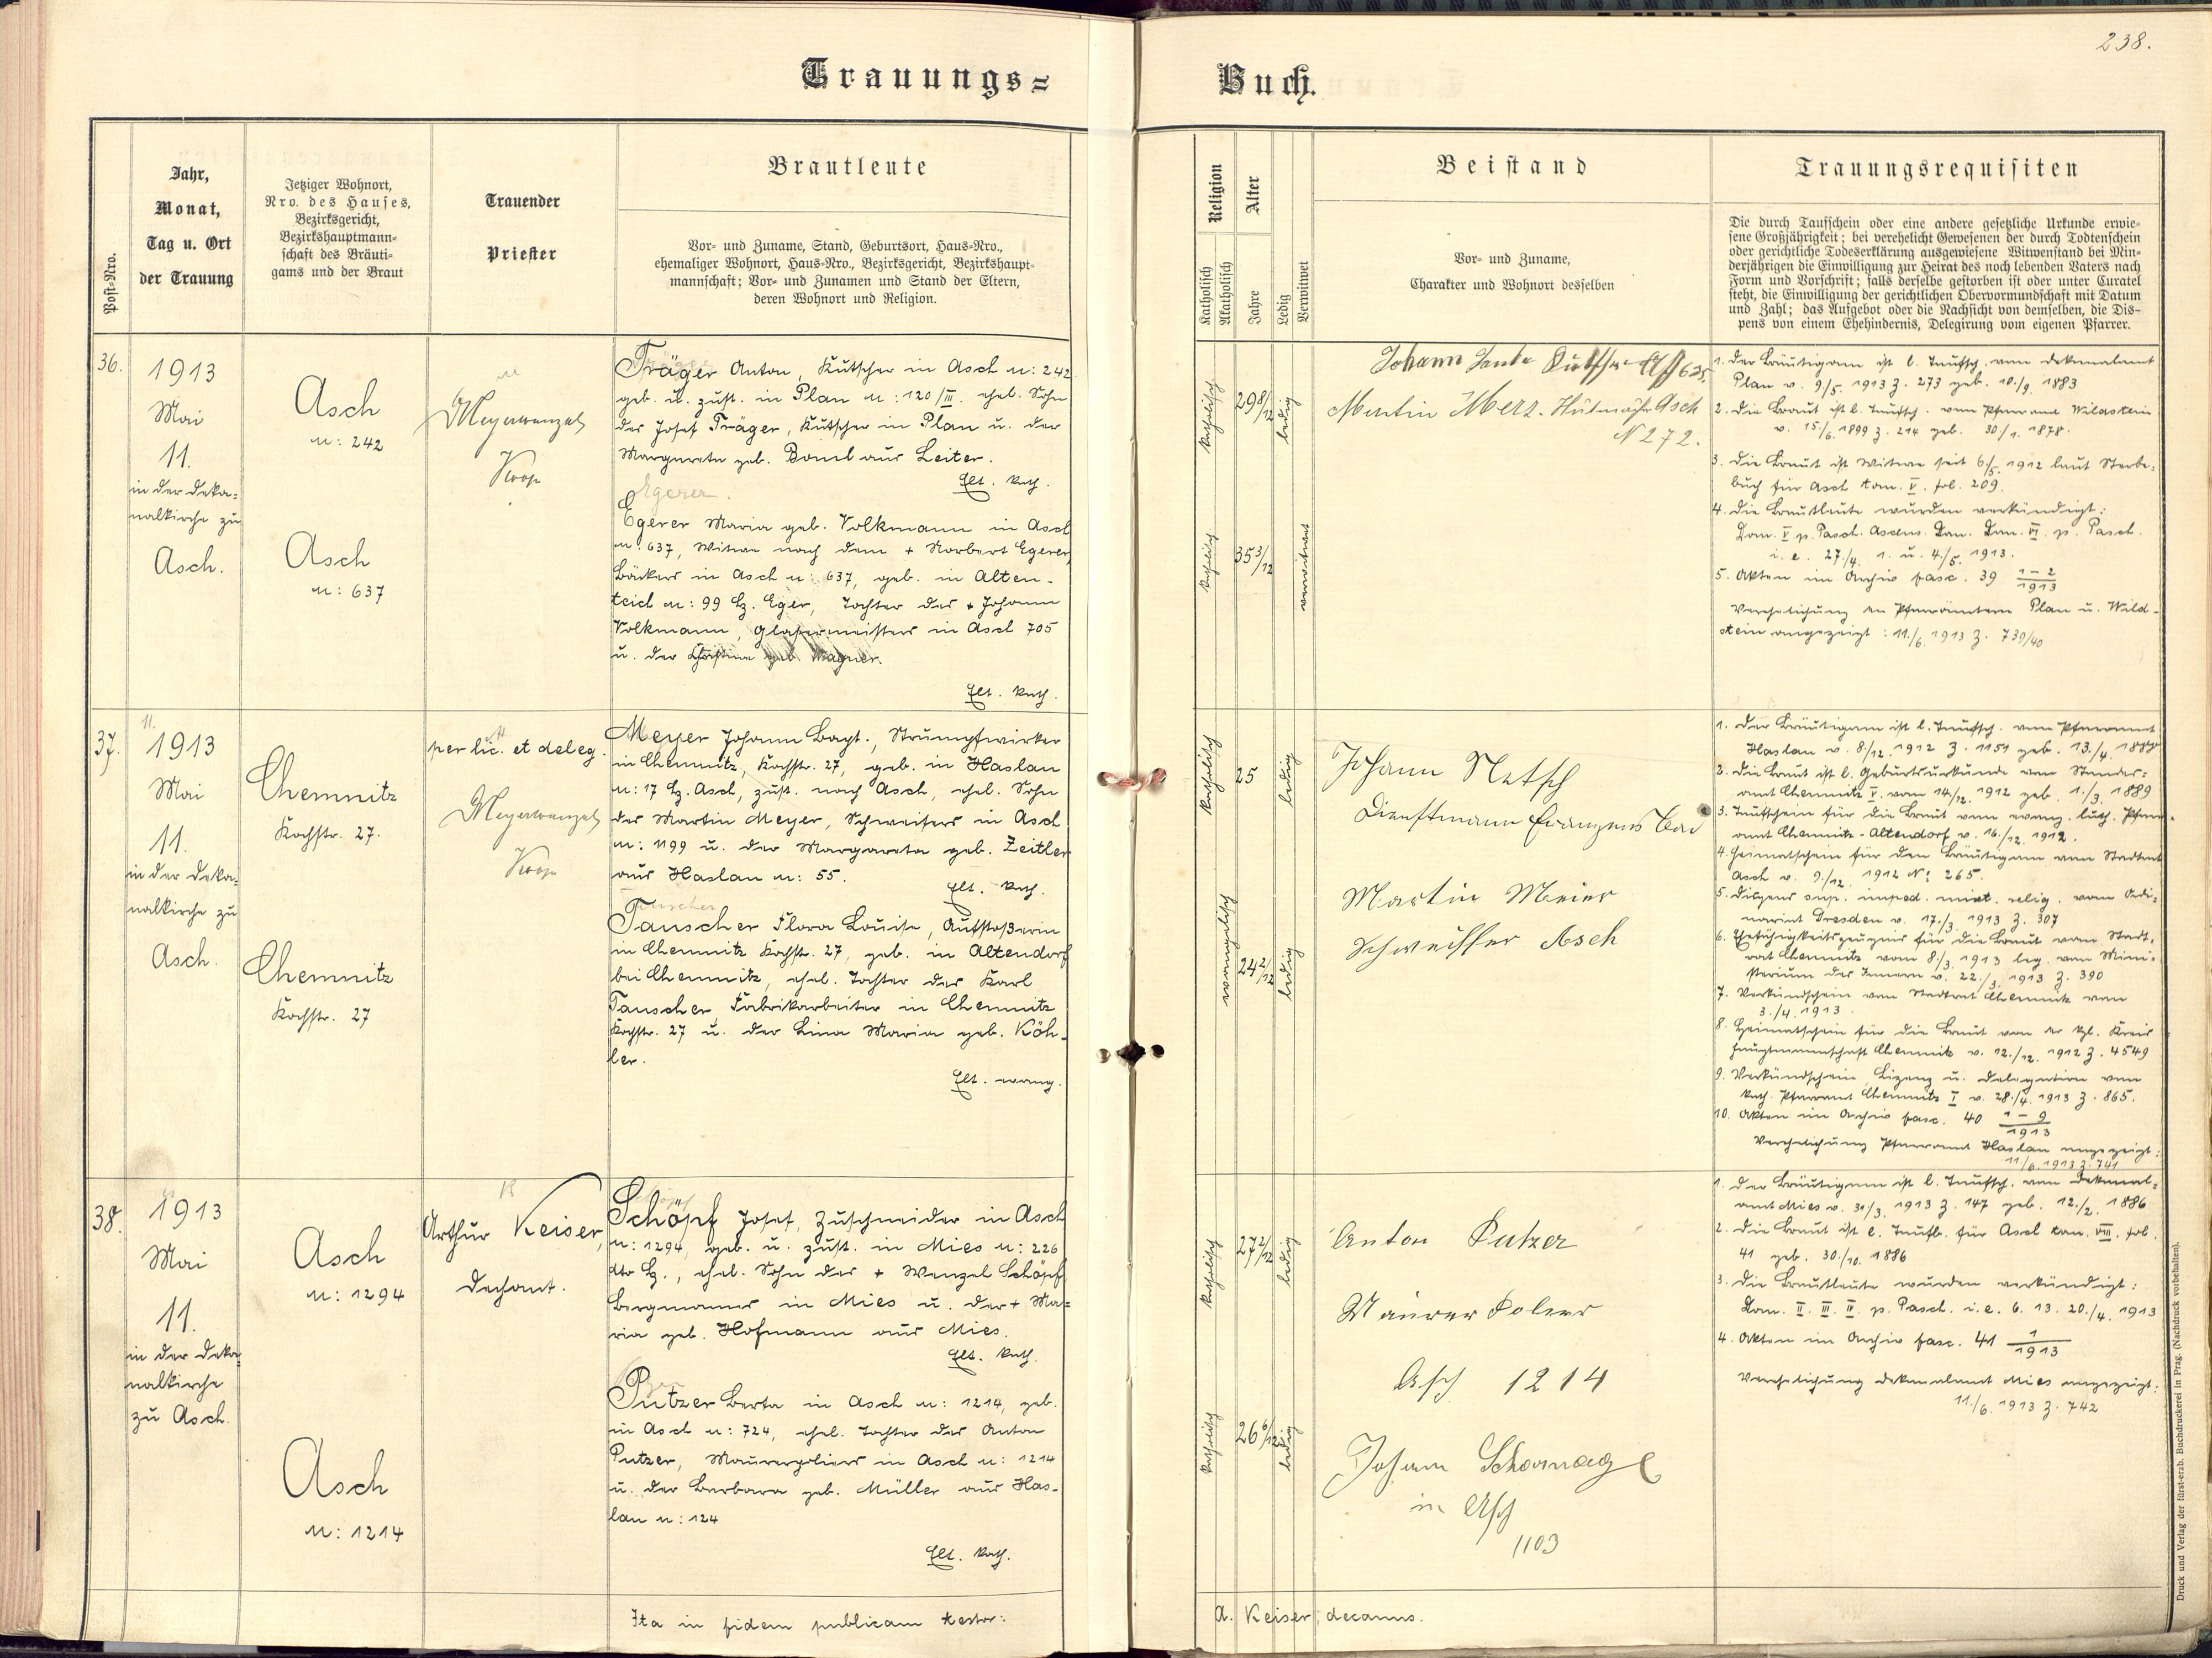 238.
Trauungs=
Buch.
Post-Nro.
Jahr,
Monat,
Tag u. Ort
der Trauung
Jetziger Wohnort,
Nro. des Hauses,
Bezirksgericht,
Bezirkshauptmann-
schaft des Bräuti-
gams und der Braut
Trauender
Priester
Brautleute
Vor- und Zuname, Stand, Geburtsort, Haus-Nro.,
ehemaliger Wohnort, Haus-Nro., Bezirksgericht, Bezirkshaupt-
mannschaft; Vor- und Zunamen und Stand der Eltern,
deren Wohnort und Religion.
Religion
Katholisch
Akatholisch
Alter
Jahre
Ledig
Verwitwet
Beistand
Vor- und Zuname,
Charakter und Wohnort desselben
Trauungsrequisiten
Die durch Taufschein oder eine andere gesetzliche Urkunde erwie-
sene Großjährigkeit; bei verehelicht Gewesenen der durch Todtenschein
oder gerichtliche Todeserklärung ausgewiesene Witwenstand bei Min-
derjährigen die Einwilligung zur Heirat des noch lebenden Vaters nach
Form und Vorschrift; falls derselbe gestorben ist oder unter Curatel
steht, die Einwilligung der gerichtlichen Obervormundschaft mit Datum
und Zahl; das Aufgebot oder die Nachsicht von demselben, die Dis-
pens von einem Ehehindernis, Delegirung vom eigenen Pfarrer.
36.
1913
Mai
11.
in der Deka-
nalkirche zu
Asch.
Asch
n: 242
Asch
n: 637
Koop
Träger Anton, Kutscher in Asch n: 242
geb. u. zust. in Plan n: 120/III. ehel. Sohn
des Josef Träger, Kutscher in Plan u. der
Margareta geb. Bomb aus Leiter.
Elt. kath.
Egerer.
Egerer Maria geb. Volkmann in Asch
n: 637, Witwe nach dem + Norbert Egerer,
Bäckers in Asch n: 637, geb. in Alten-
teich n: 99 Bz. Eger, Tochter des + Johann
Volkmann, Glasermeisters in Asch 705
u. der Christina geb. Wagner.
Elt. kath.
katholisch
29 8/12
ledig
katholisch
35 3/12
verwitwet
Johann
Martin Merz. Asch
N 272.
1. Der Bräutigam ist l. Taufsch. vom Dekanalamt
Plan v. 9./5. 1913 Z. 273 geb. 10./9. 1883
2. Die Braut ist l. Taufsch. vom Pfarramt Wildstein
v. 15./6. 1899 Z. 214 geb. 30./1. 1878.
3. Die Braut ist Witwe seit 6./5. 1912 laut Sterbe-
buch für Asch tom. V. fol. 209.
4. Die Brautleute wurden verkündigt:
Dom. V p. Pasch. Ascens. Dom. Dom. VI. p. Pasch.
i. e. 27./4. 1. u. 4./5. 1913.
5. Akten im Archiv fasc. 39 1-2/1913
Verehelichung an Pfarrämtern Plan u. Wild-
stein angezeigt: 11./6. 1913 Z. 739/40
37.
1913
Mai
11.
in der Deka-
nalkirche zu
Asch.
Chemnitz
Kochstr. 27.
Chemnitz
Kochstr. 27
per lic. et deleg.
Koop
Meyer Johann Bapt., Strumpfwirker
in Chemnitz, Kochstr. 27, geb. in Haslau
n: 17 Bz. Asch, zust. nach Asch, ehel. Sohn
des Martin Meyer, Schweifers in Asch
n: 1199 u. der Margareta geb. Zeitler
aus Haslau n: 55.
Elt. kath.
Tauscher
Tauscher Flora Louise, Aufstoßerin
in Chemnitz Kochstr. 27, geb. in Altendorf
bei Chemnitz, ehel. Tochter des Karl
Tauscher, Fabrikarbeiter in Chemnitz
Kochstr. 27 u. der Lina Maria geb. Köh-
ler.
Elt. evang.
katholisch
25
ledig
evangelisch
24 2/12
ledig
Johann Netsch
Dienstmann Franzensbad
Martin Meier
Schweiffer Asch
1. Der Bräutigam ist l. Taufsch. vom Pfarramt
Haslau v. 8./12. 1912 Z. 1151 geb. 13./4. 1888
2. Die Braut ist l. Geburtsurkunde vom Standes-
amt Chemnitz V. vom 14./12. 1912 geb. 1./3. 1889
3. Taufschein für die Braut vom evang. luth. Pfarr-
amt Chemnitz-Altendorf v. 16./12. 1912.
4. Heimatschein für den Bräutigam vom Stadtamt
Asch v. 9./12. 1912 N: 265.
5. Dispens sup. imped. mixt. relig. vom Ordi-
nariat Dresden v. 17./3. 1913 Z. 307
6. Ehefähigkeitszeugnis für die Braut vom Stadt-
rat Chemnitz vom 8./3. 1913 leg. vom Mini-
sterium des Innern v. 22./3. 1913 Z. 390
7. Verkündschein vom Stadtrat Chemnitz vom
3./4. 1913.
8. Heimatschein für die Braut von der kgl. Kreis
hauptmannschaft Chemnitz v. 12./12. 1912 Z. 4549
9. Verkündschein, Lizenz u. Delegation vom
kath. Pfarramt Chemnitz I v. 28./4. 1913 Z. 865.
10. Akten im Archiv fasc. 40 1-9/1913
Verehelichung Pfarramt Haslau angezeigt:
11./6. 1913 Z. 741
38.
1913
Mai
11.
in der Deka-
nalkirche
zu Asch.
Asch
n: 1294
Asch
n: 1214
Arthur Keiser,
Dechant.
Schöpf Josef, Zuschneider in Asch
n: 1294, geb. u. zust. in Mies n: 226
dto Bz., ehel. Sohn des + Wenzel Schöpf
Bergmanns in Mies u. der + Ma-
ria geb. Hofmann aus Mies.
Elt. kath.
Putzer Berta in Asch n: 1214, geb.
in Asch n: 724, ehel. Tochter des Anton
Putzer, Maurerpoliers in Asch n: 1214
u. der Barbara geb. Müller aus Has-
lau n: 124
Elt. kath.
katholisch
27 2/12
ledig
katholisch
26 6/12
ledig
Anton Putzer
Maurer Polier
Asch 1214
Johann
in Asch
1103
1. Der Bräutigam ist l. Taufsch. vom Dekanal-
amt Mies v. 31/3. 1913 Z. 147 geb. 12./2. 1886
2. Die Braut ist l. Taufb. für Asch tom. VIII. fol.
41 geb. 30./10. 1886
3. Die Brautleute wurden verkündigt:
Dom. II. III. IV. p. Pasch. i. e. 6. 13. 20./4. 1913
4. Akten im Archiv fasc. 41 1/1913
Verehelichung Dekanalamt Mies angezeigt:
11./6. 1913 Z. 742
Ita in fidem publicam testor:
A. Keiser, decanus.
Druck und Verlag der fürst-erzb. Buchdruckerei in Prag. (Nachdruck vorbehalten).